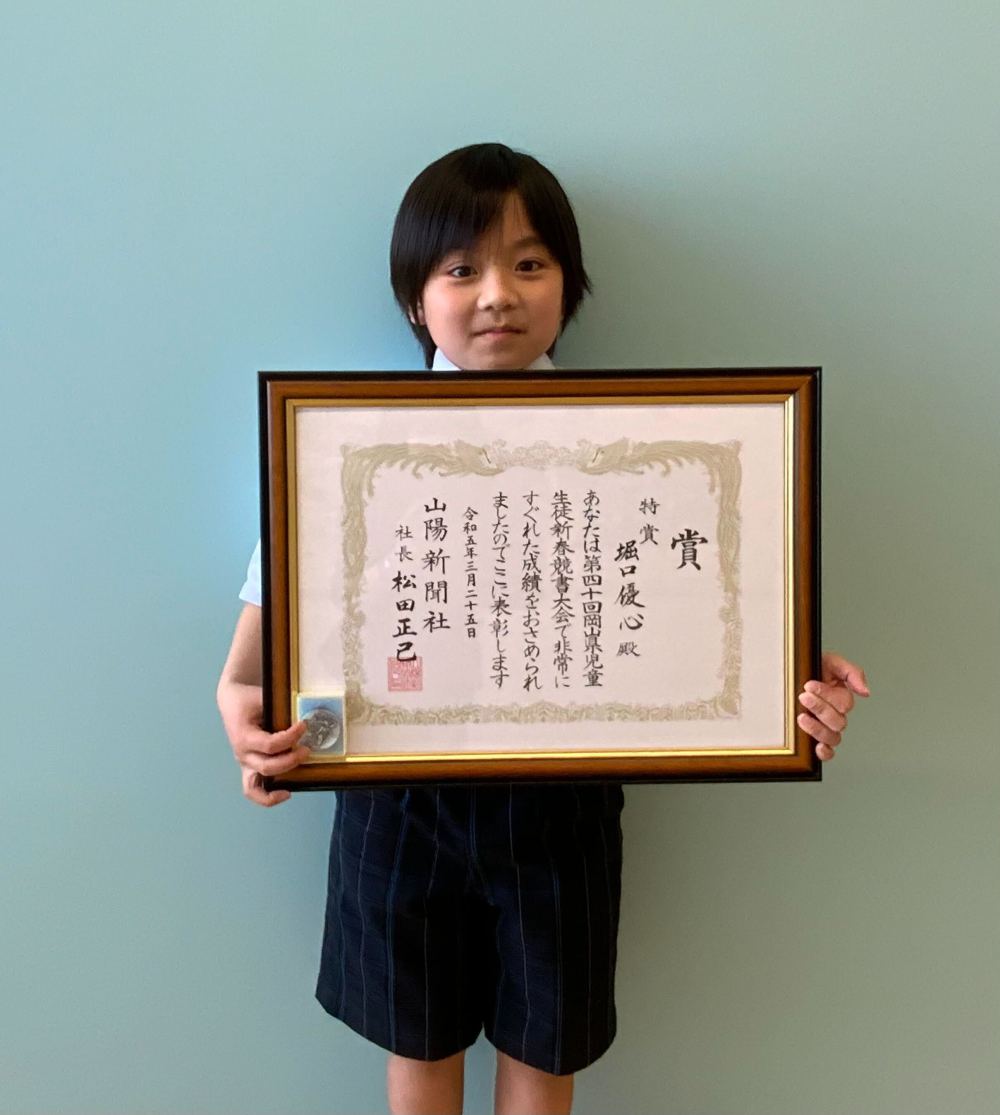 賞
特賞
堀口優心 殿
あなたは第四十回岡山県児童
生徒新春競書大会で非常に
すぐれた成績をおさめられ
ましたのでここに表彰します
令和五年三月二十五日
山陽新聞社
社長 松田正己